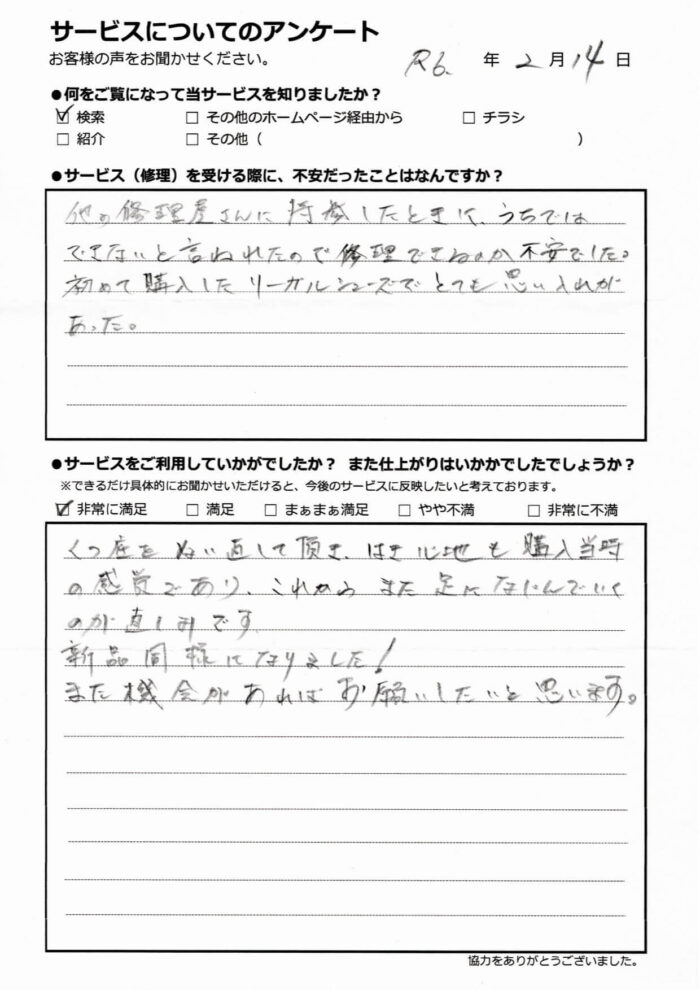 サービスについてのアンケート
お客様の声をお聞かせください。
R6. 年 2 月 14 日
●何をご覧になって当サービスを知りましたか？
☑ 検索 □ その他のホームページ経由から □ チラシ
□ 紹介 □ その他（ ）
●サービス（修理）を受ける際に、不安だったことはなんですか？
他の修理屋さんに持参したときに、うちでは
できないと言われたので修理できるのか不安でした。
初めて購入したリーガルシューズでとても思い入れが
あった。
●サービスをご利用していかがでしたか？ また仕上がりはいかかでしたでしょうか？
※できるだけ具体的にお聞かせいただけると、今後のサービスに反映したいと考えております。
☑ 非常に満足 □ 満足 □ まぁまぁ満足 □ やや不満 □ 非常に不満
くつ底をぬい直して頂き、はき心地も購入当時
の感覚であり、これからまた足になじんでいく
のが しみです
新品同様になりました！
また機会があればお願いしたいと思います。
協力をありがとうございました。